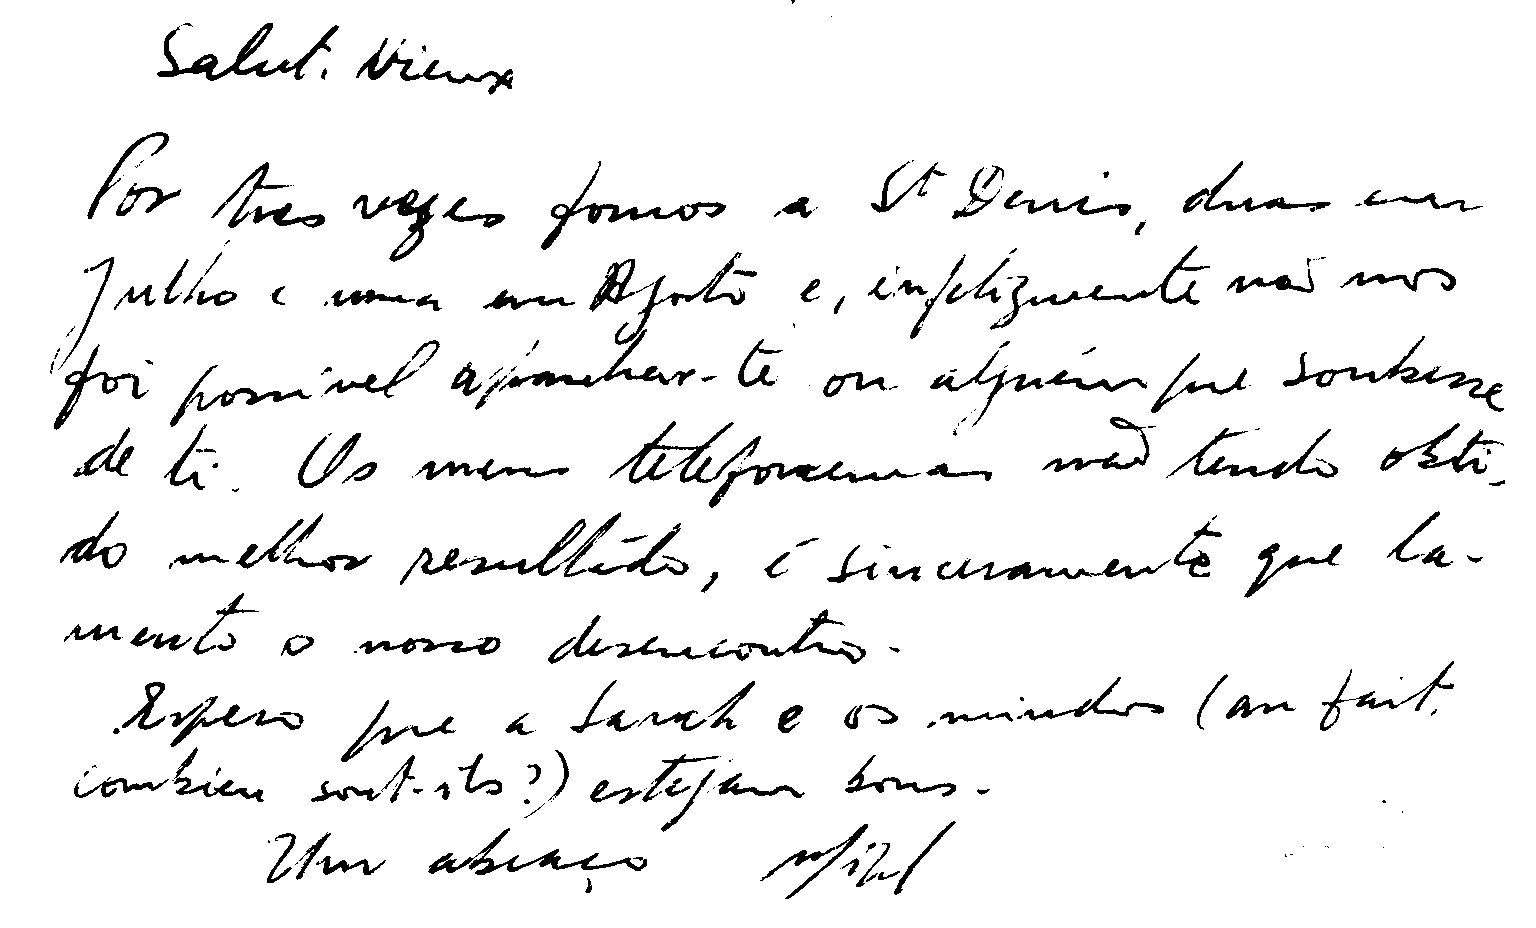 Salut. Vieux
Por tres vezes fomos a St Denis, duas em
Julho e uma em Agosto e, infelizmente não nos
foi possível apanhar-te ou alguém que soubesse
de ti. Os meus telefonemas não tendo obti-
do melhor resultado, é sinceramente que la-
mento o nosso desencontro.
Espero que a Sarah e os miudos (au fait.
combien sont-ils?) estejam bons.
Um abraço